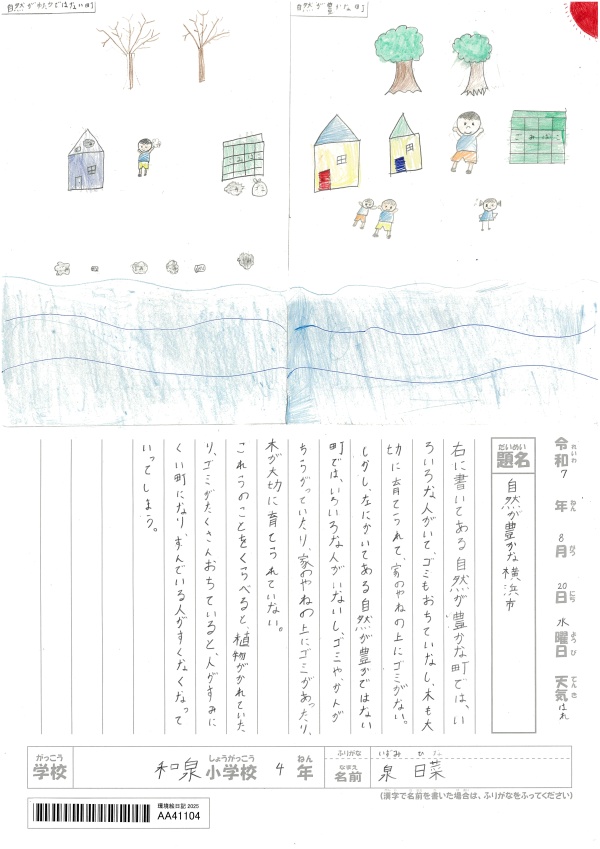 自然がゆたかではない町
自然が豊かな町
ごみばこ
令和7年8月20日水曜日天気はれ
れいわ
ねん
がつ
にち
ようび
てんき
だいめい
題名
自然が豊かな横浜市
右に書いてある自然が豊かな町では、い
ろいろな人がいて、ゴミもおちていなし、木も大
切に育てられて、家のやねの上にゴミがない。
しかし、左にかいてある自然が豊かではない
町では、いろいろな人がいないし、ゴミや、かんが
ちらがっていたり、家のやねの上にゴミがあったり、
木が大切に育てられていない。
これらのことをくらべると、植物がかれていた
り、ゴミがたくさんおちていると、人がすみに
くい町になり、すんでいる人がすくなくなって
いってしまう。
がっこう
学校
和泉小学校
しょうがっこう
4年
ねん
ふりがな
いずみ ひな
なまえ
名前
泉 日菜
(漢字で名前を書いた場合は、ふりがなをふってください)
環境絵日記2025
AA41104